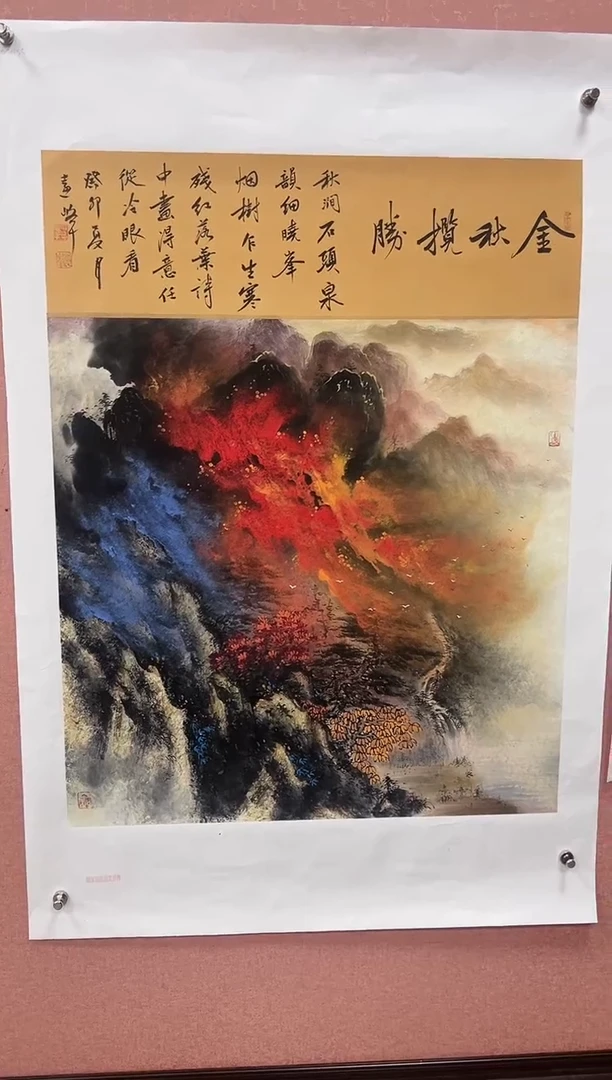 金秋攬勝
秋澗石頭泉
韻細曉峯
烟樹乍生寒
殘紅落葉詩
中畫得意任
從冷眼看
癸卯夏月